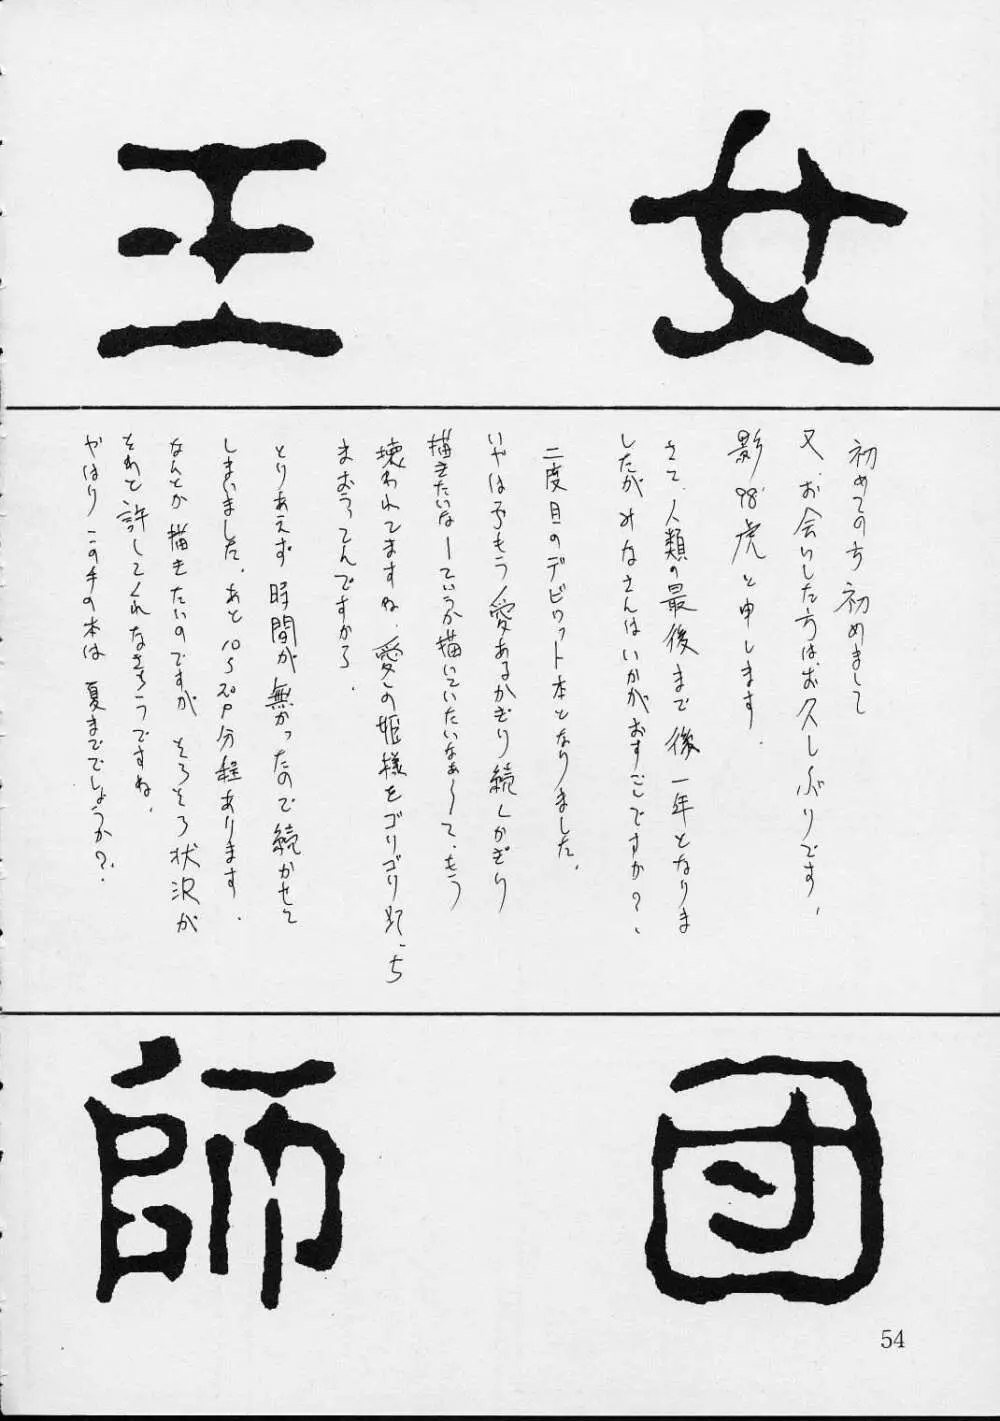 王女
初めての方 初めまして
又、お会いした方はお久しぶりです、
影98'虎と申します.
さて、人類の最後まで後一年となりま
したがみなさんはいかがおすごしですか?、
二度目のデビュット本となりました.
いやは予もう愛あるかぎり続くかぎり
描きたいなーていうか描いていたいなぁ〜て、もう
壊われてますね、愛の姫様をゴリゴリ
まおうってんですから.
とりあえず 時間が無かったので続かせて
しまいました、あと 分程あります.
なんとか描きたいのですが そろそろ状況が
それと許してくれなさそうですね、
やはりこの手の本は 夏まででしょうか?.
師団
54